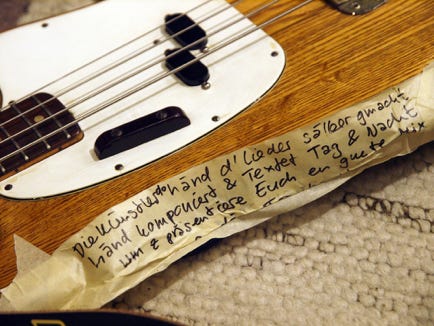 Die Künstler händ d' Lieder sälber gmacht
händ komponiert & Textet Tag & Nacht
um z präsentiere Euch en guete Mix